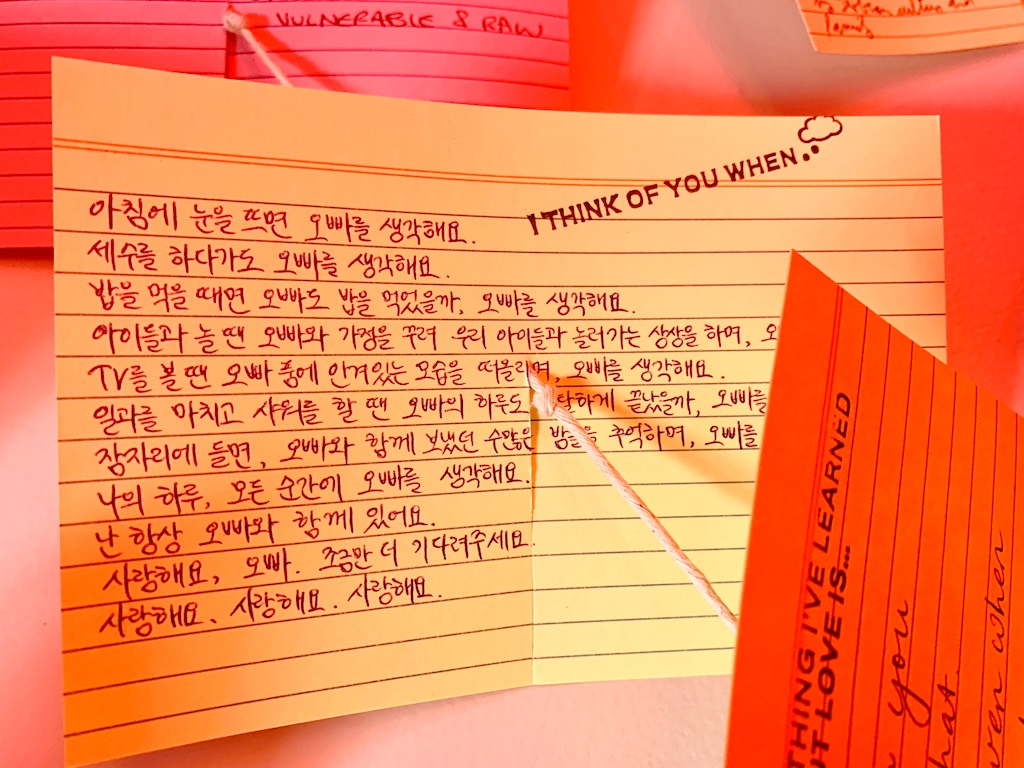 VULNERABLE & RAW
I THINK OF YOU WHEN..
아침에 눈을 뜨면 오빠를 생각해요.
세수를 하다가도 오빠를 생각해요.
밥을 먹을 때면 오빠도 밥을 먹었을까, 오빠를 생각해요.
아이들과 놀 땐 오빠와 가정을 꾸려 우리 아이들과 놀러가는 상상을 하며,
TV를 볼 땐 오빠 품에 안겨있는 모습을 떠올리며, 오빠를 생각해요.
일과를 마치고 샤워를 할 땐 오빠의 하루도 끝났을까, 오빠를
잠자리에 들면, 오빠와 함께 보냈던 수많은 밤들을 추억하며, 오빠를
나의 하루, 모든 순간에 오빠를 생각해요.
난 항상 오빠와 함께 있어요.
사랑해요, 오빠. 조금만 더 기다려주세요.
사랑해요. 사랑해요. 사랑해요.
THING I'VE LEARNED
LOVE IS...
you
when